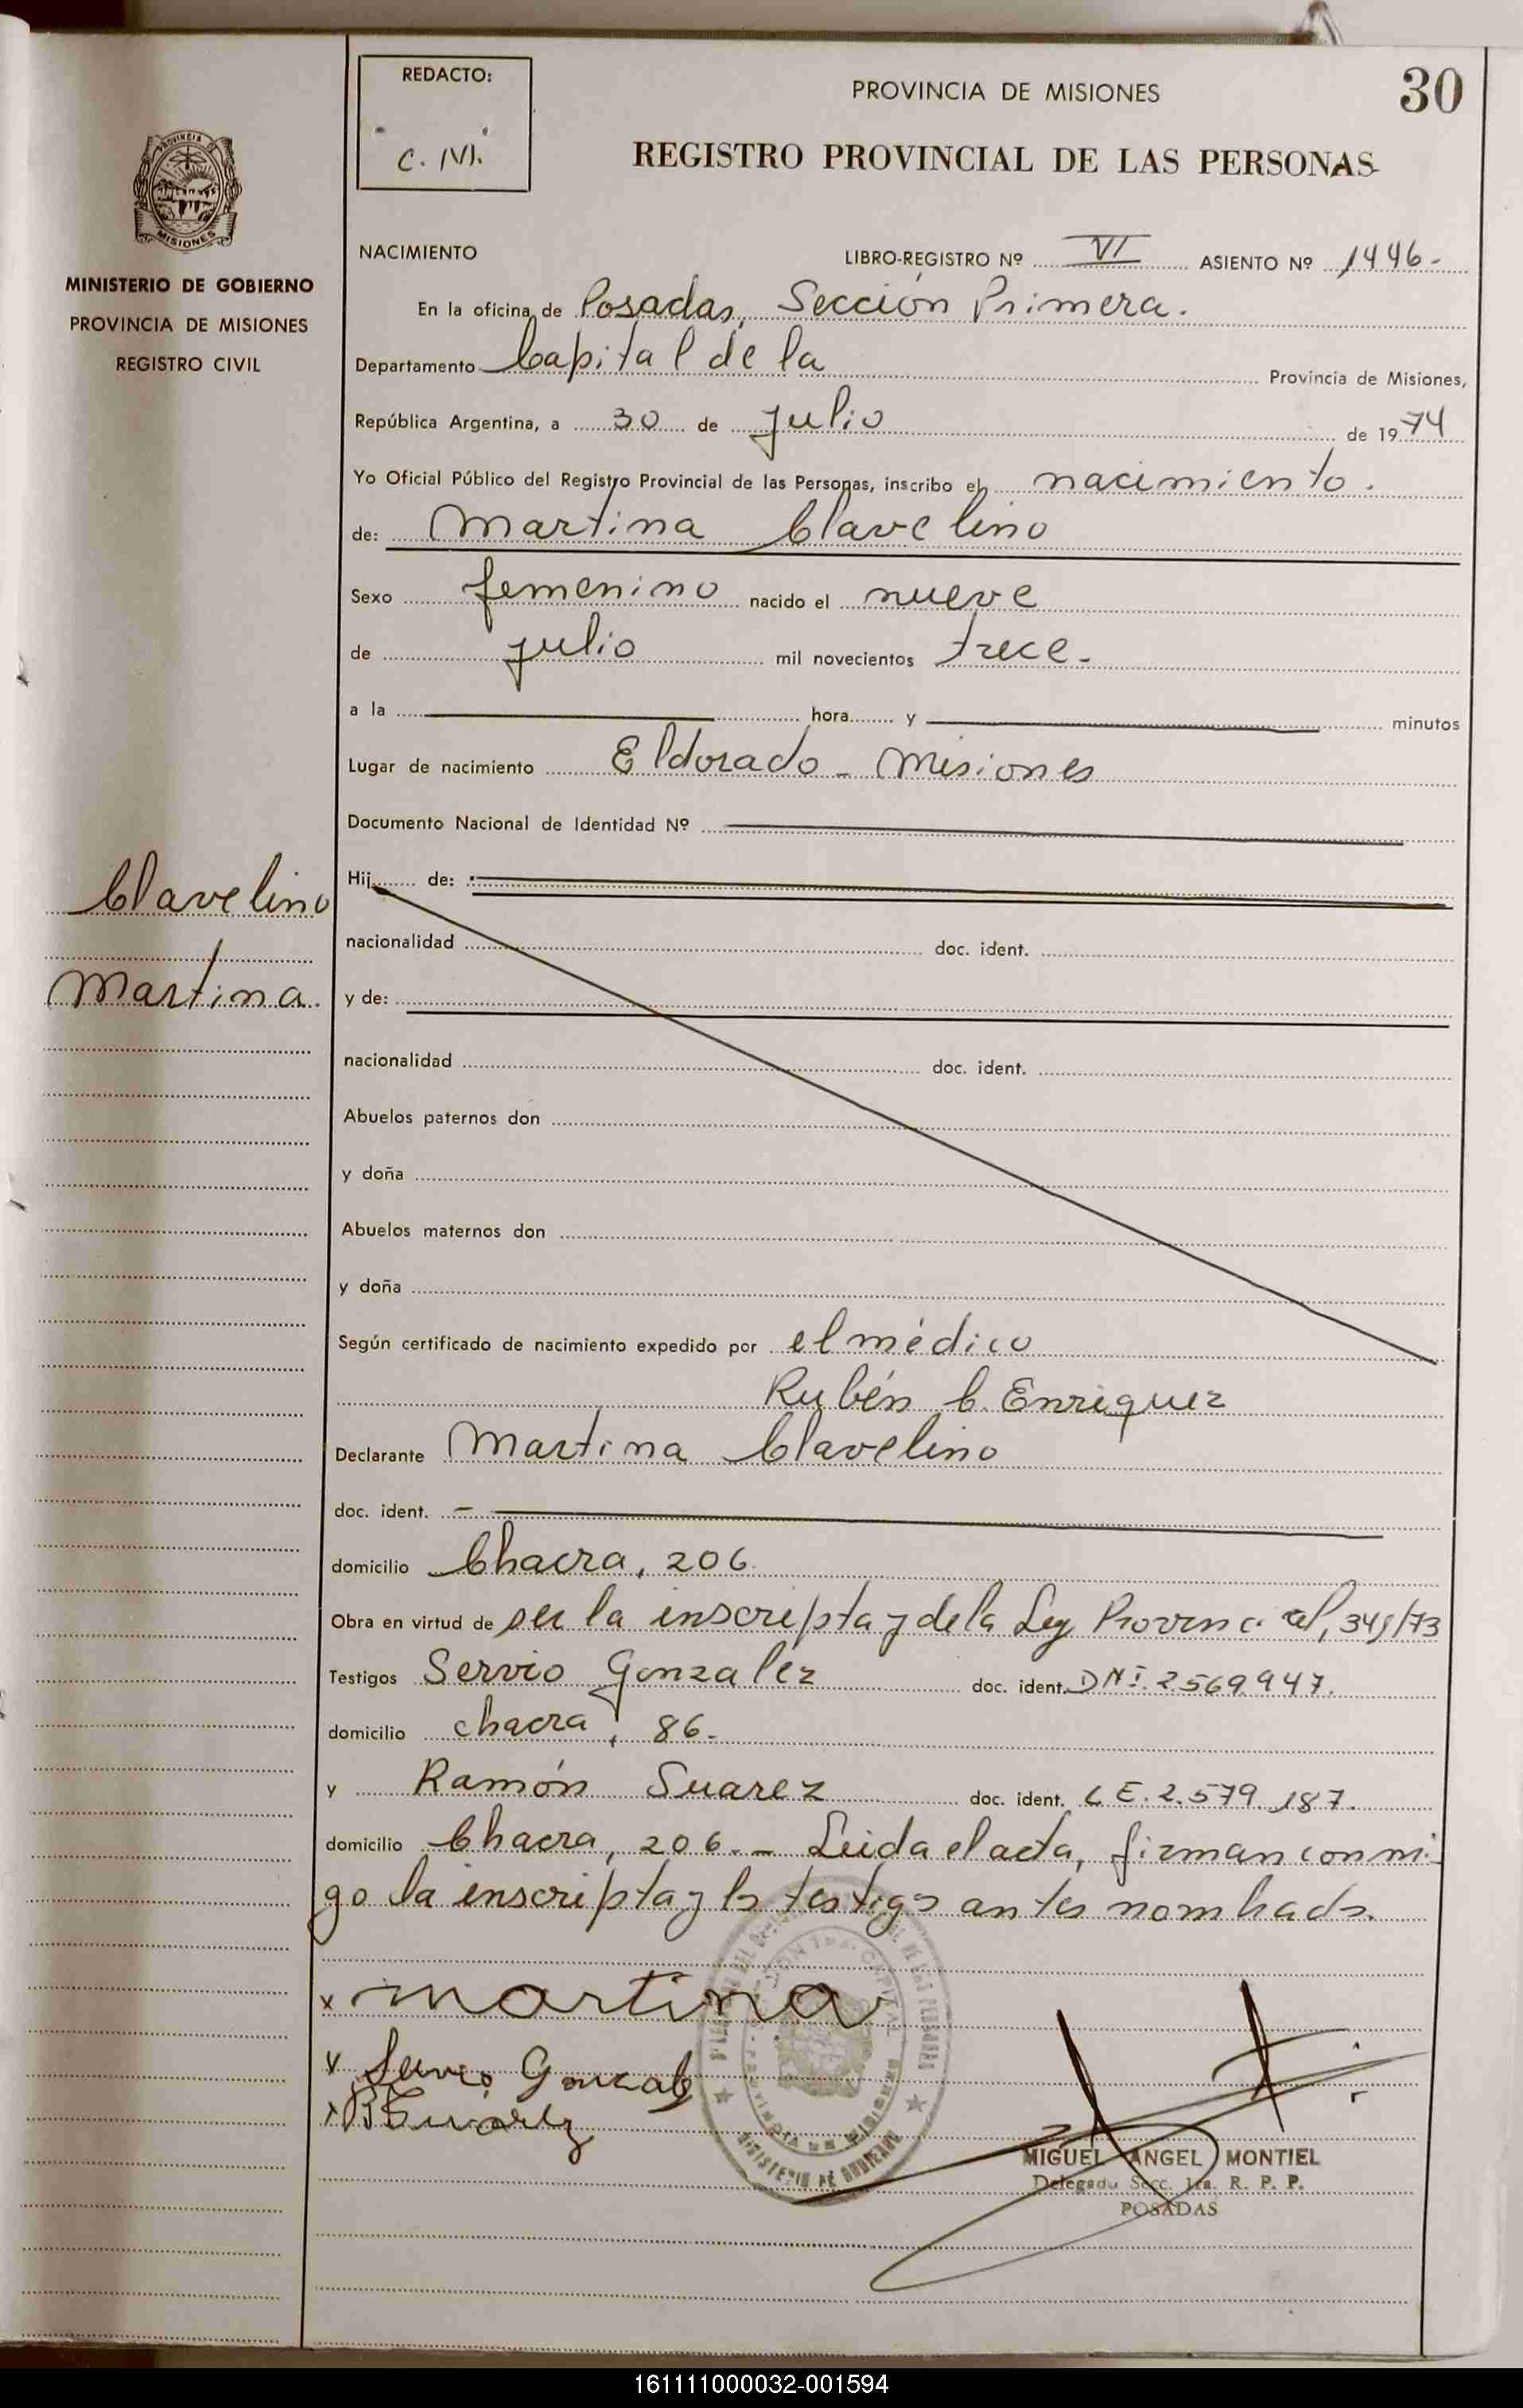 REDACTO:
C. M.
PROVINCIA DE MISIONES
30
REGISTRO PROVINCIAL DE LAS PERSONAS
PROVINCIA DE
MISIONES
MINISTERIO DE GOBIERNO
PROVINCIA DE MISIONES
REGISTRO CIVIL
NACIMIENTO LIBRO-REGISTRO Nº VI ASIENTO Nº 1446-
En la oficina de Posadas, Sección Primera.
Departamento Capital de la Provincia de Misiones,
República Argentina, a 30 de julio de 1974
Yo Oficial Público del Registro Provincial de las Personas, inscribo el nacimiento.
de: Martina Clavelino
Sexo femenino nacido el nueve
de julio mil novecientos trece-
a la hora y minutos
Lugar de nacimiento Eldorado - Misiones
Documento Nacional de Identidad Nº
Clavelino
Martina.
Hij de:
nacionalidad doc. ident.
y de:
nacionalidad doc. ident.
Abuelos paternos don
y doña
Abuelos maternos don
y doña
Según certificado de nacimiento expedido por el médico
Rubén C. Enriquez
Declarante Martina Clavelino
doc. ident. -
domicilio Chacra, 206.
Obra en virtud de ser la inscripta y de la Ley Provincial,
Testigos Servio Gonzalez doc. ident. DNI. 2569947.
domicilio chacra, 86-
y Ramón Suarez doc. ident. LE. 2.579.187.
domicilio Chacra, 206.- Leida el acta, firman conmi-
go la inscripta y los testigos antes nombrados.
x martina
x Servio Gonzalez
x R Suarez
MINISTERIO DE GOBIERNO
MIGUEL ANGEL MONTIEL
Delegado Secc. 1ra. R. P. P.
POSADAS
161111000032-001594